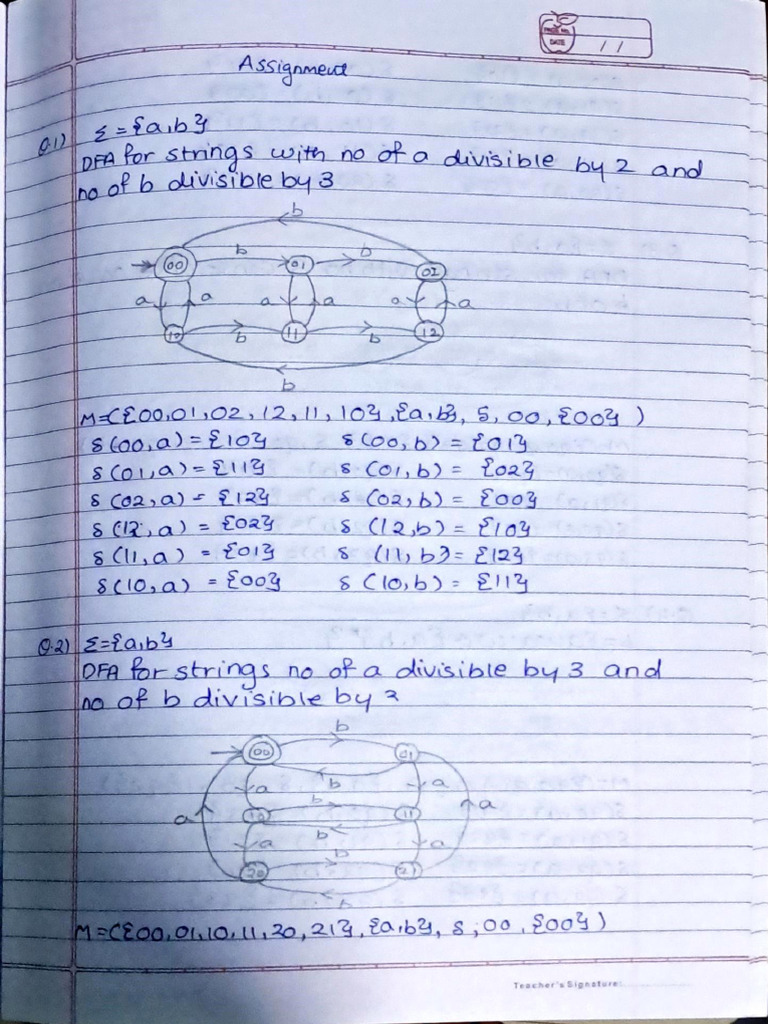 PAGE NO.
DATE / /
Assignment
Q.1) Σ={a,b}
DFA for strings with no of a divisible by 2 and
no of b divisible by 3
b
00 b 01 b 02
a a a a a a
10 b 11 b 12
b
M=({00,01,02,12,11,10},{a,b}, δ, 00, {00} )
δ(00,a) = {10} δ(00,b) = {01}
δ(01,a) = {11} δ(01,b) = {02}
δ(02,a) = {12} δ(02,b) = {00}
δ(12,a) = {02} δ(12,b) = {10}
δ(11,a) = {01} δ(11,b) = {12}
δ(10,a) = {00} δ(10,b) = {11}
Q.2) Σ={a,b}
DFA for strings no of a divisible by 3 and
no of b divisible by 2
b
00 01
b
a a
b
a 10 11 a
b
a b a
20 21
b
M=({00,01,10,11,20,21},{a,b}, δ, 00, {00})
Teacher's Signature: